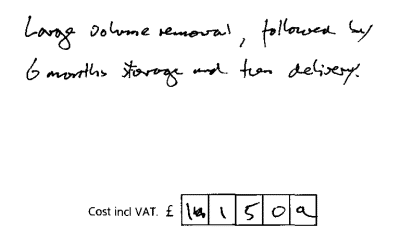 Large volume removal, followed by
6 months storage and then delivery.
Cost incl VAT. £ 1 5 0